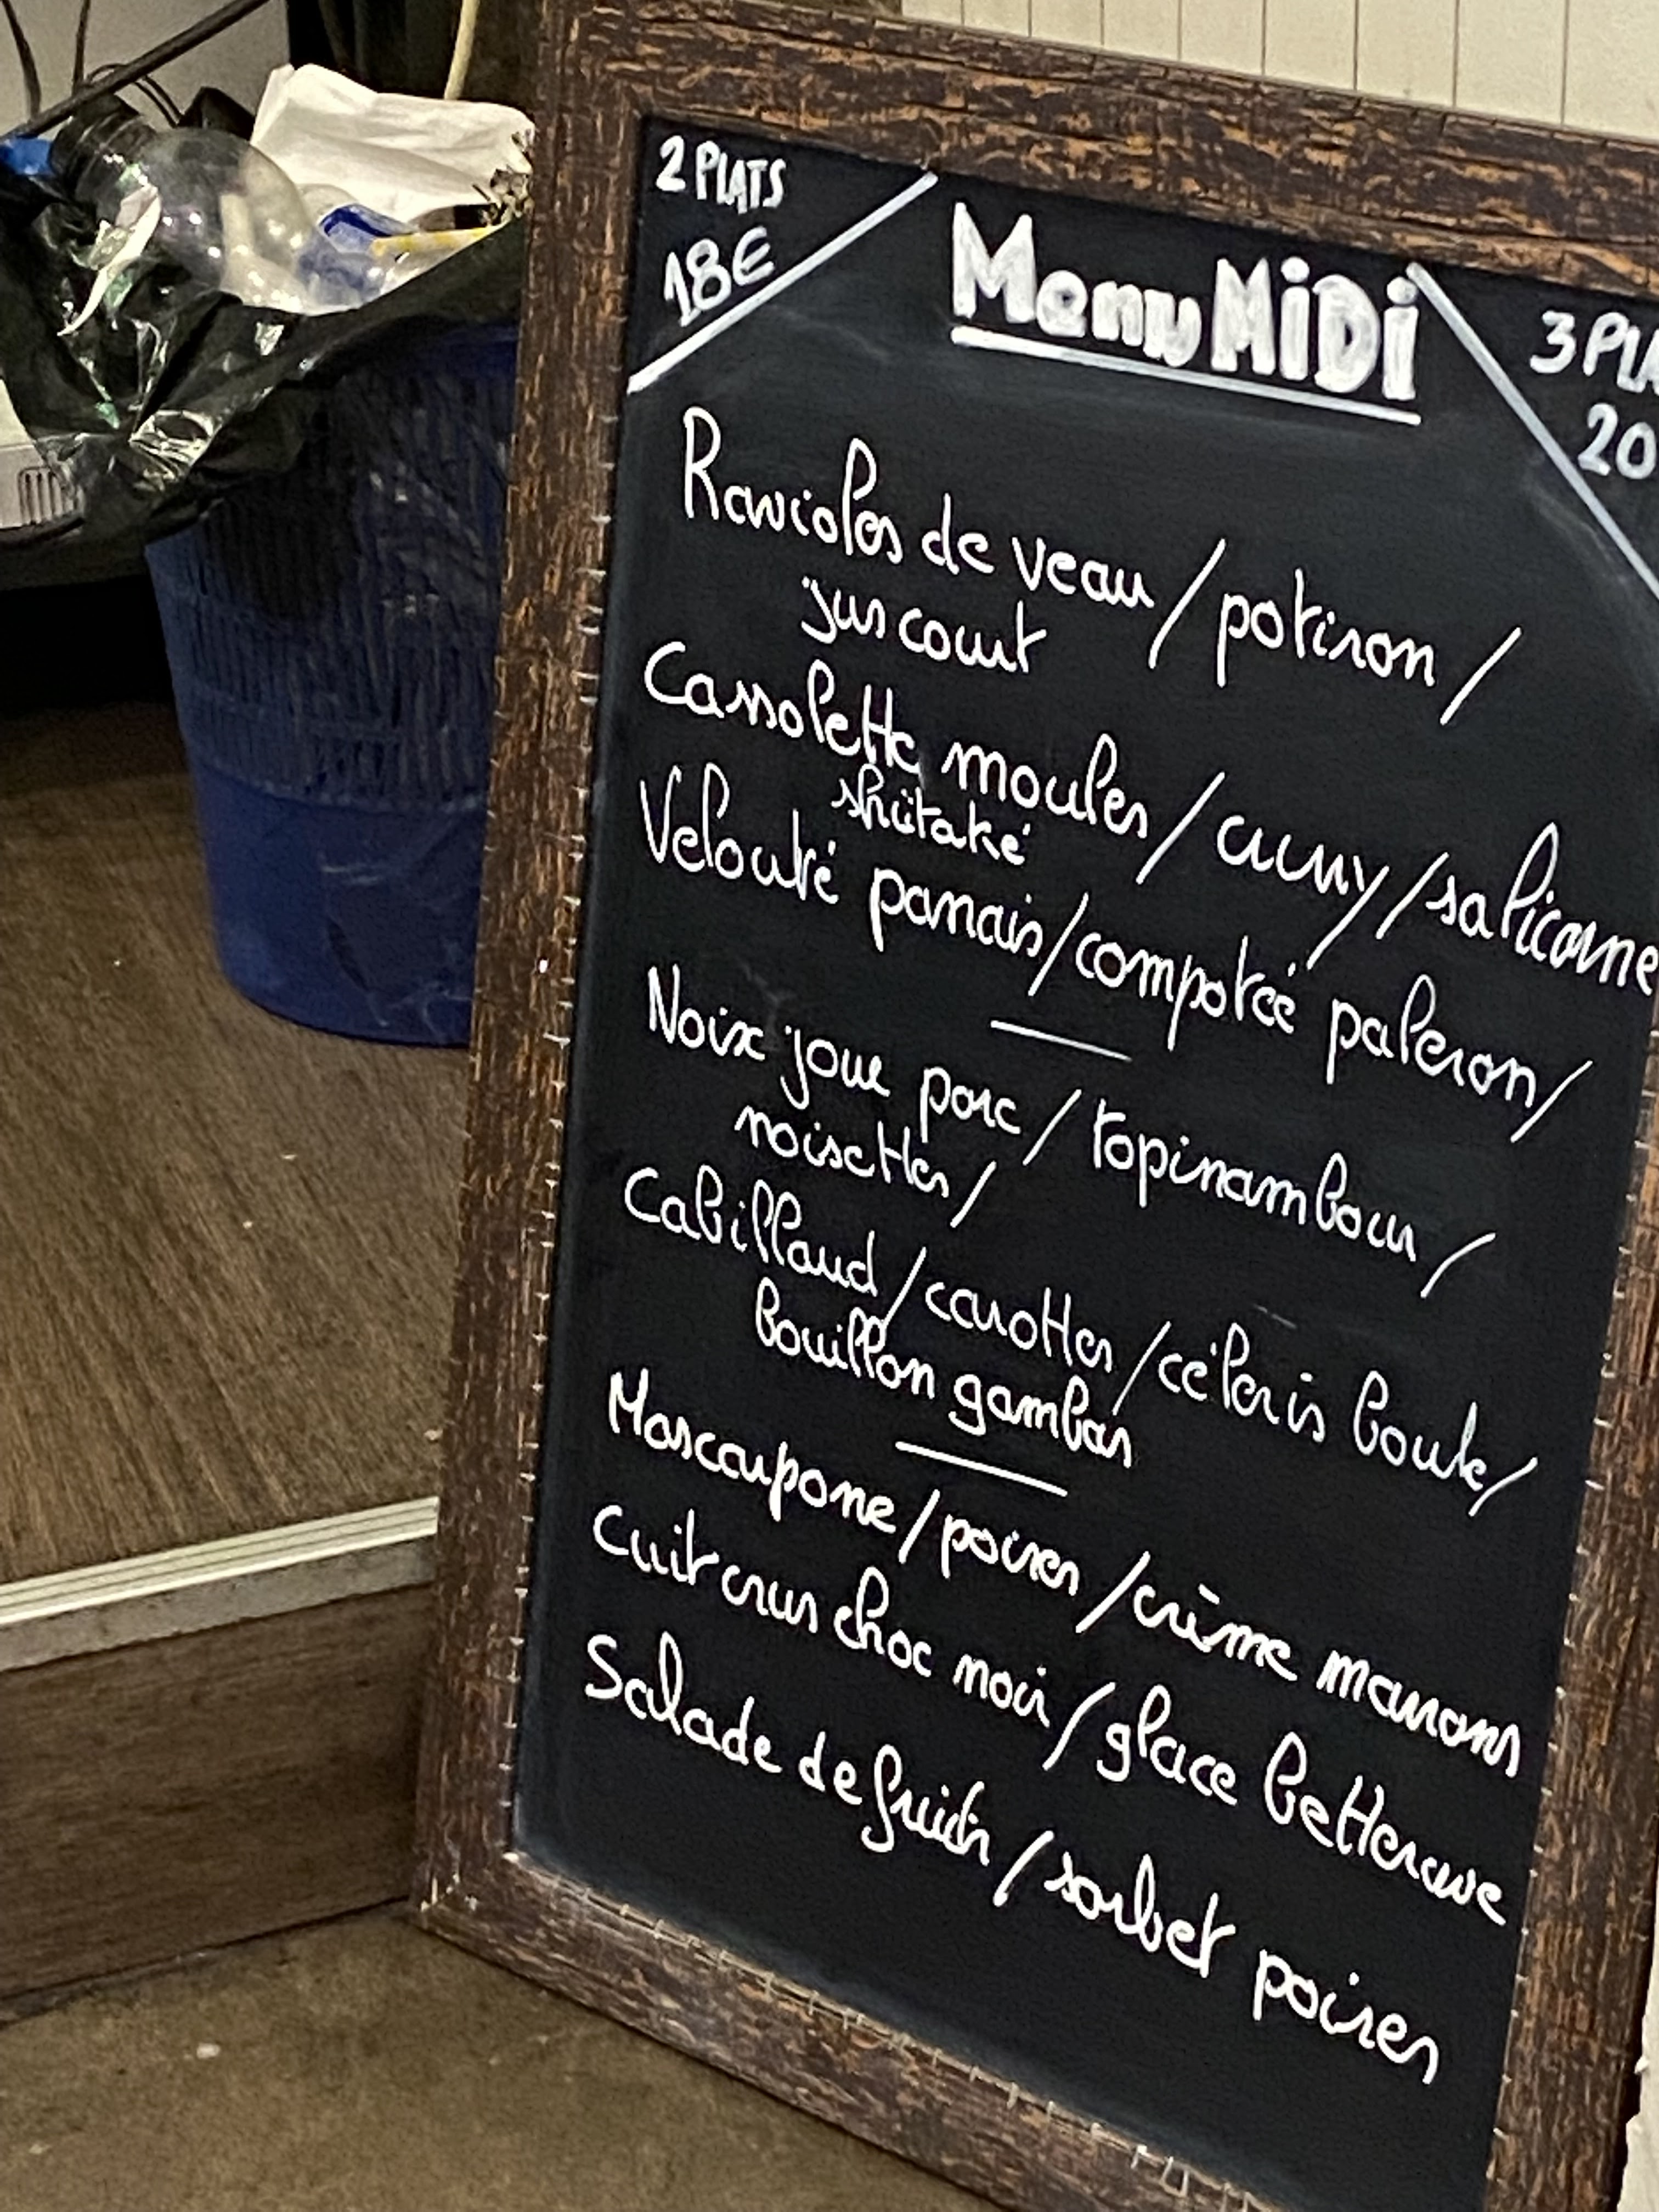 2 PLATS
18€
Menu MiDi
3 PLA
20
Ravioles de veau / potiron /
jus court
Cassolette moules / curry / salicorne
shiitaké
Velouté panais / compotée paleron /
Noix joue porc / topinambour /
noisettes /
Cabillaud / carottes / céleris boule /
bouillon gambas
Mascarpone / poires / crème marrons
Cuit crus choc noir / glace betterave
Salade de fruits / sorbet poires